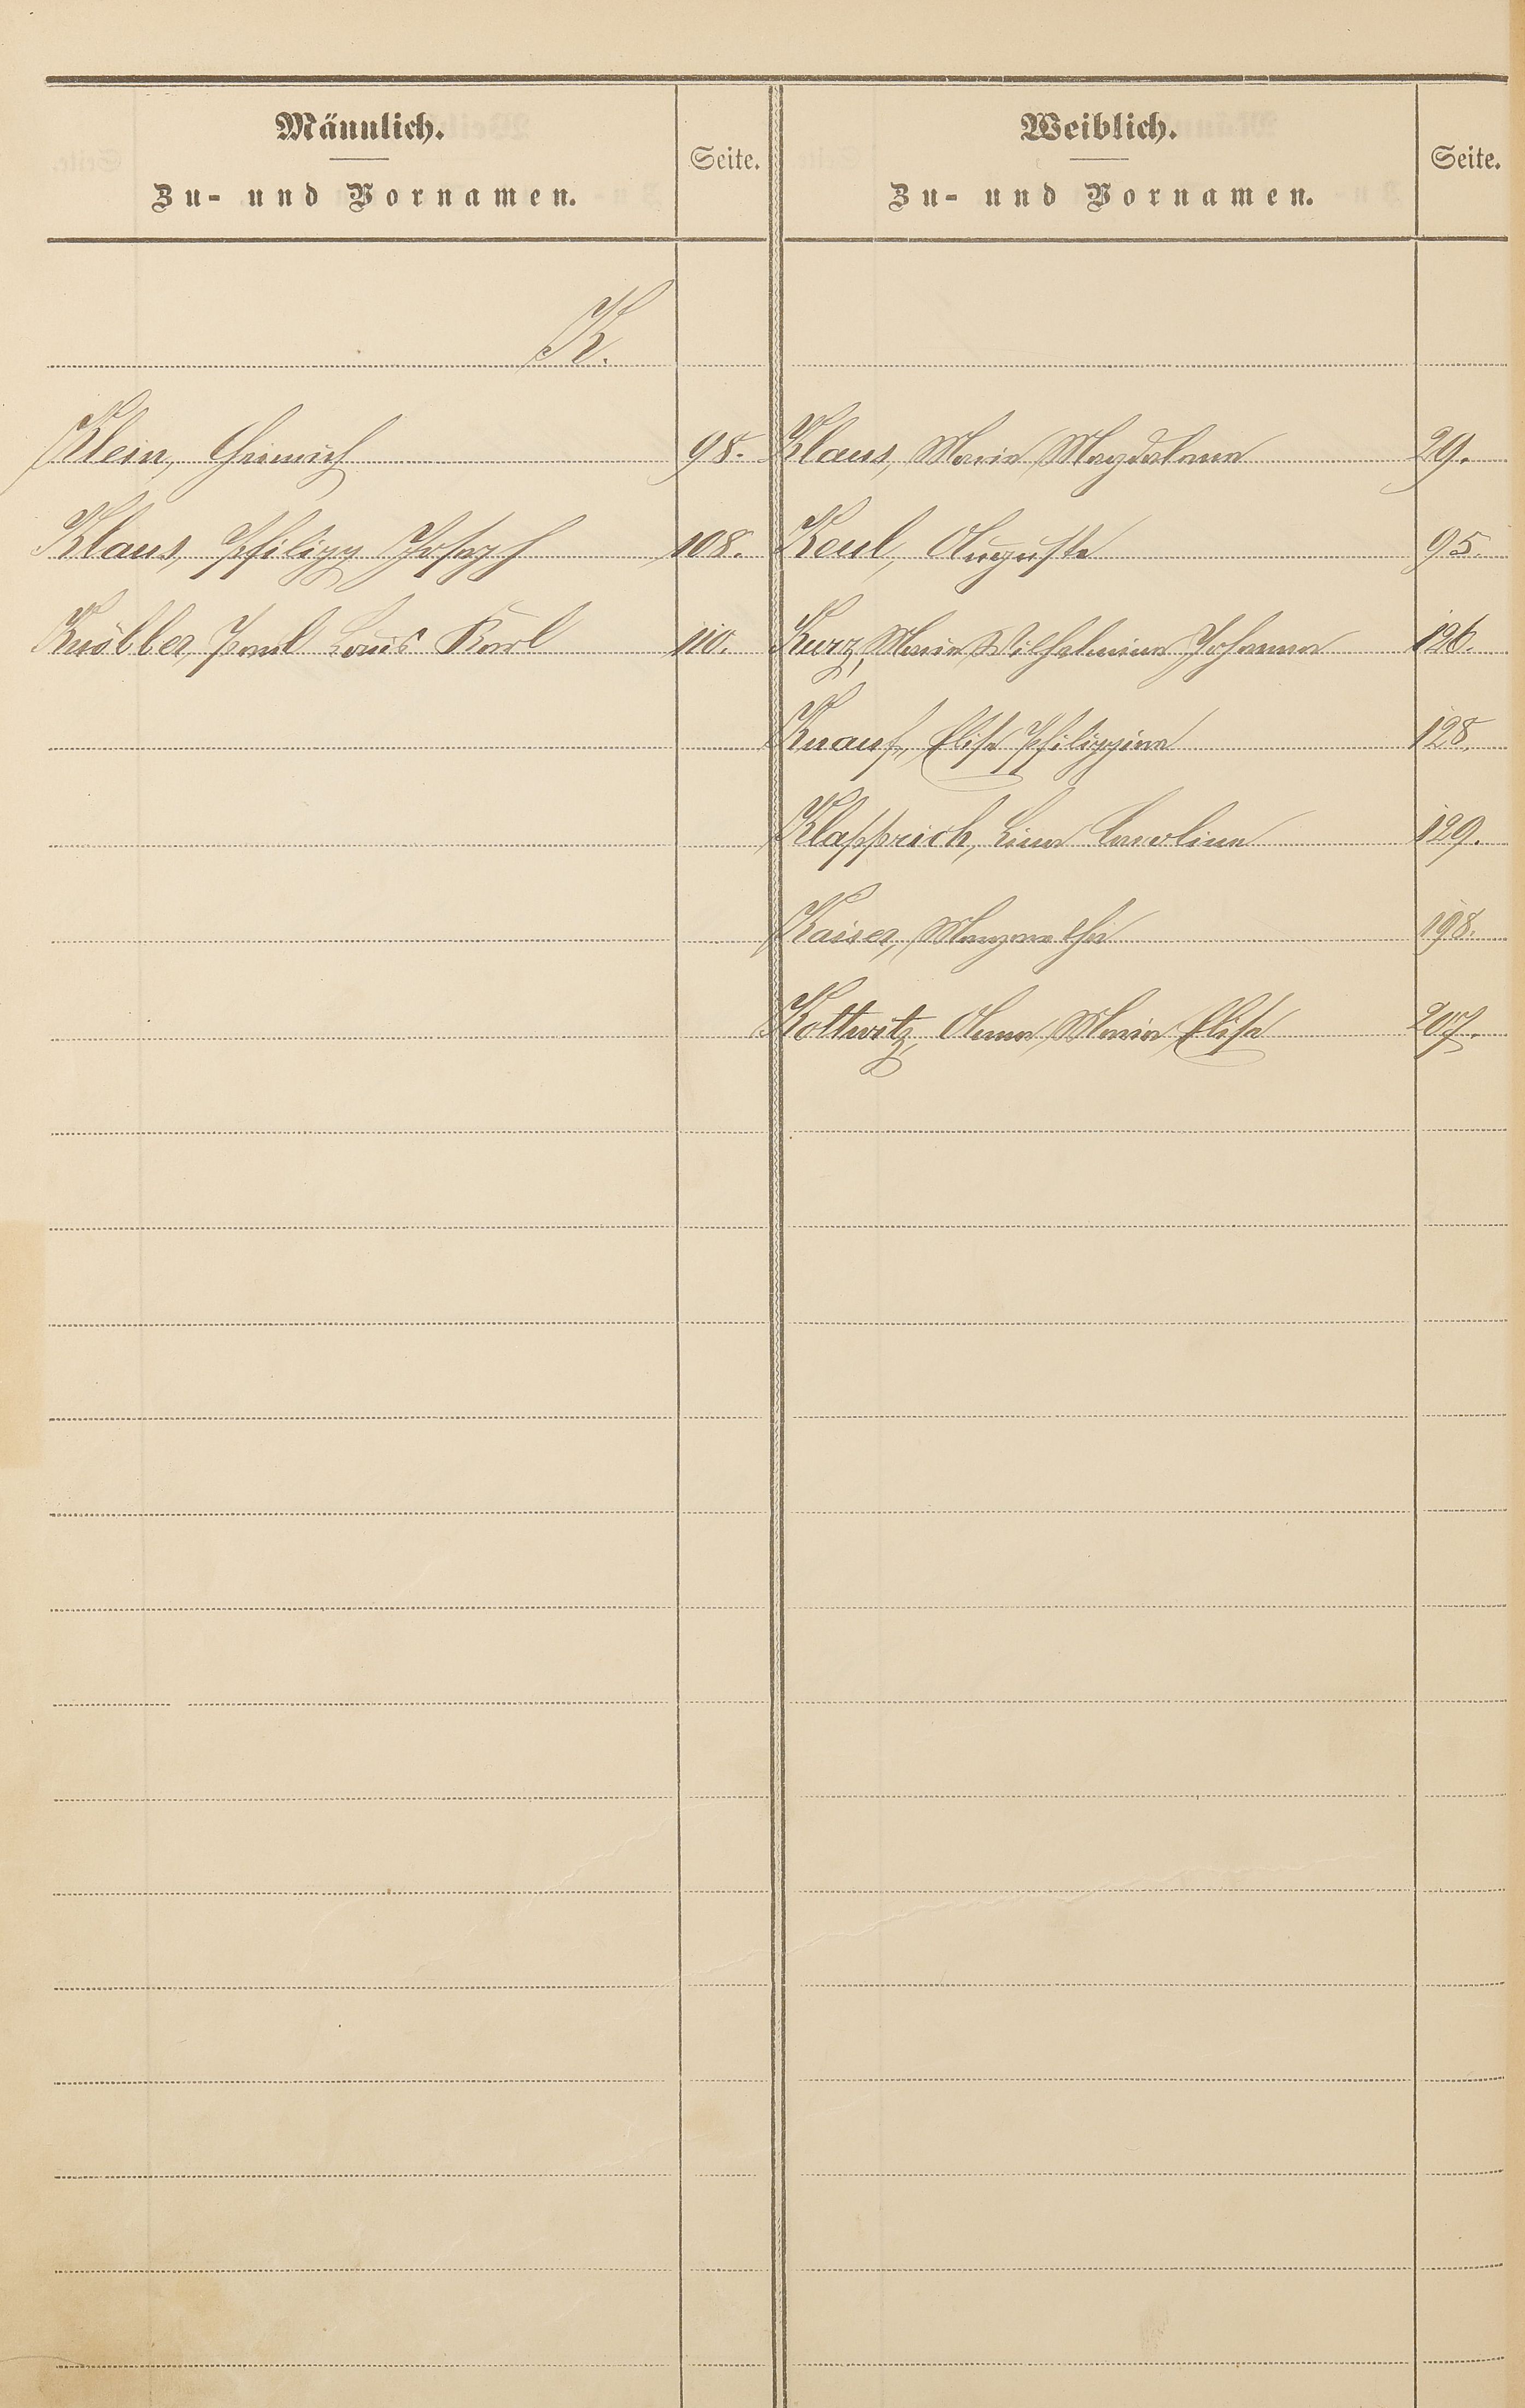 Männlich.
Zu- und Vornamen.
Seite.
Weiblich.
Zu- und Vornamen.
Seite.
K.
Klein, Heinrich 98. Klaus, Marie Magdalena 29.
Klaus, Philipp Joseph 108. Keul, Auguste 95.
Knöbber, Paul Louis Karl 110. Kurz, Marie Wilhelmine Johanna 126.
Knauf, Elise Philippine 128.
Klapprich, Lina Caroline 129.
Kaiser, Margarethe 198.
Kottwitz, Anna Maria Elise 207.